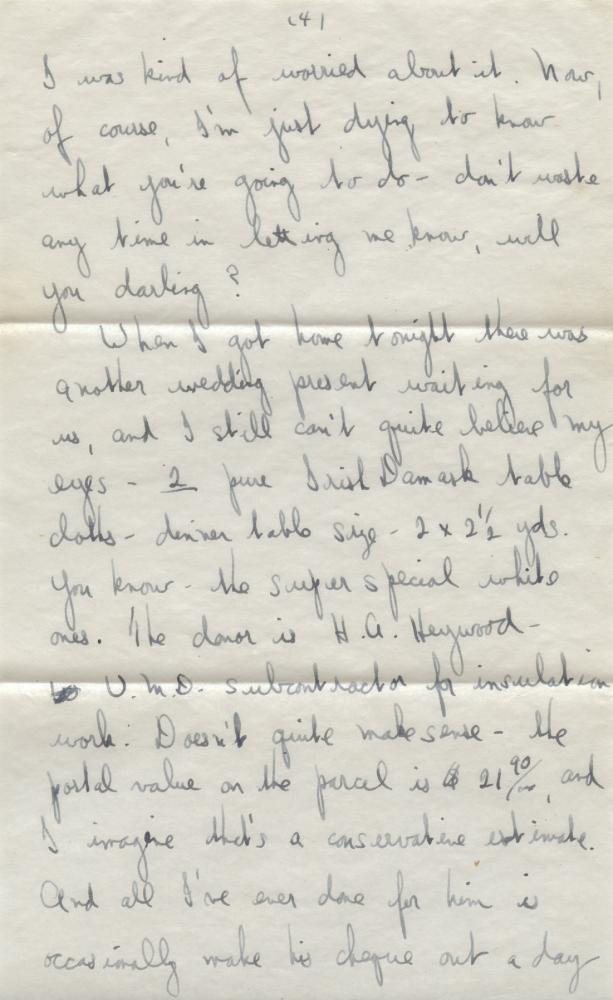 (4)
I was kind of worried about it. Now,
of course, I'm just dying to know
what you're going to do - don't waste
any time in letting me know, will
you darling?
When I got home tonight there was
another wedding present waiting for
us, and I still can't quite believe my
eyes - 2 pure Irish Damask table
cloths - dinner table size - 2 x 2 1/2 yds.
You know - the super special white
ones. The donor is H.A. Heywood -
U.M.D. subcontractor for insulation
work. Doesn't quite make sense - the
postal value on the parcel is $ 21 90/100, and
I imagine that's a conservative estimate.
And all I've ever done for him is
occasionally make his cheque out a day